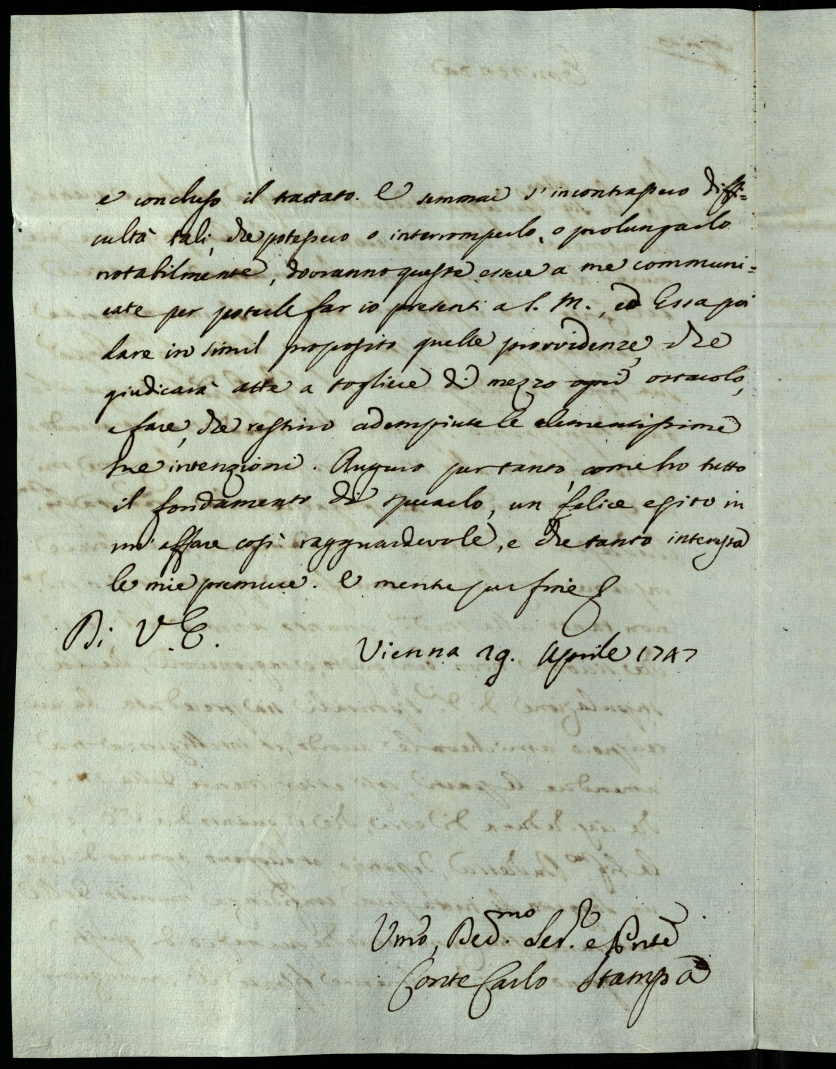 e concluso il trattato. E semmai s'incontrassero diffi=
cultà tali, che potessero o interromperlo, o prolungarlo
notabilmente, dovranno queste essere a me communi=
cate per poterle far io presenti a S. M., ed Essa poi
dare in simil proposito quelle provvidenze, che
giudicarà atte a togliere di mezzo ogni ostacolo,
e fare, che restino adempiute le clementissime
sue intenzioni. Auguro per tanto, come ho tutto
il fondamento di sperarlo, un felice esito in
un'affare così ragguardevole, e che tanto interessa
le mie premure. E mente per fine
Di V. E.
Vienna 29. Aprile 1747
Umo, Devmo. Ser.r e
Conte Carlo Stampa